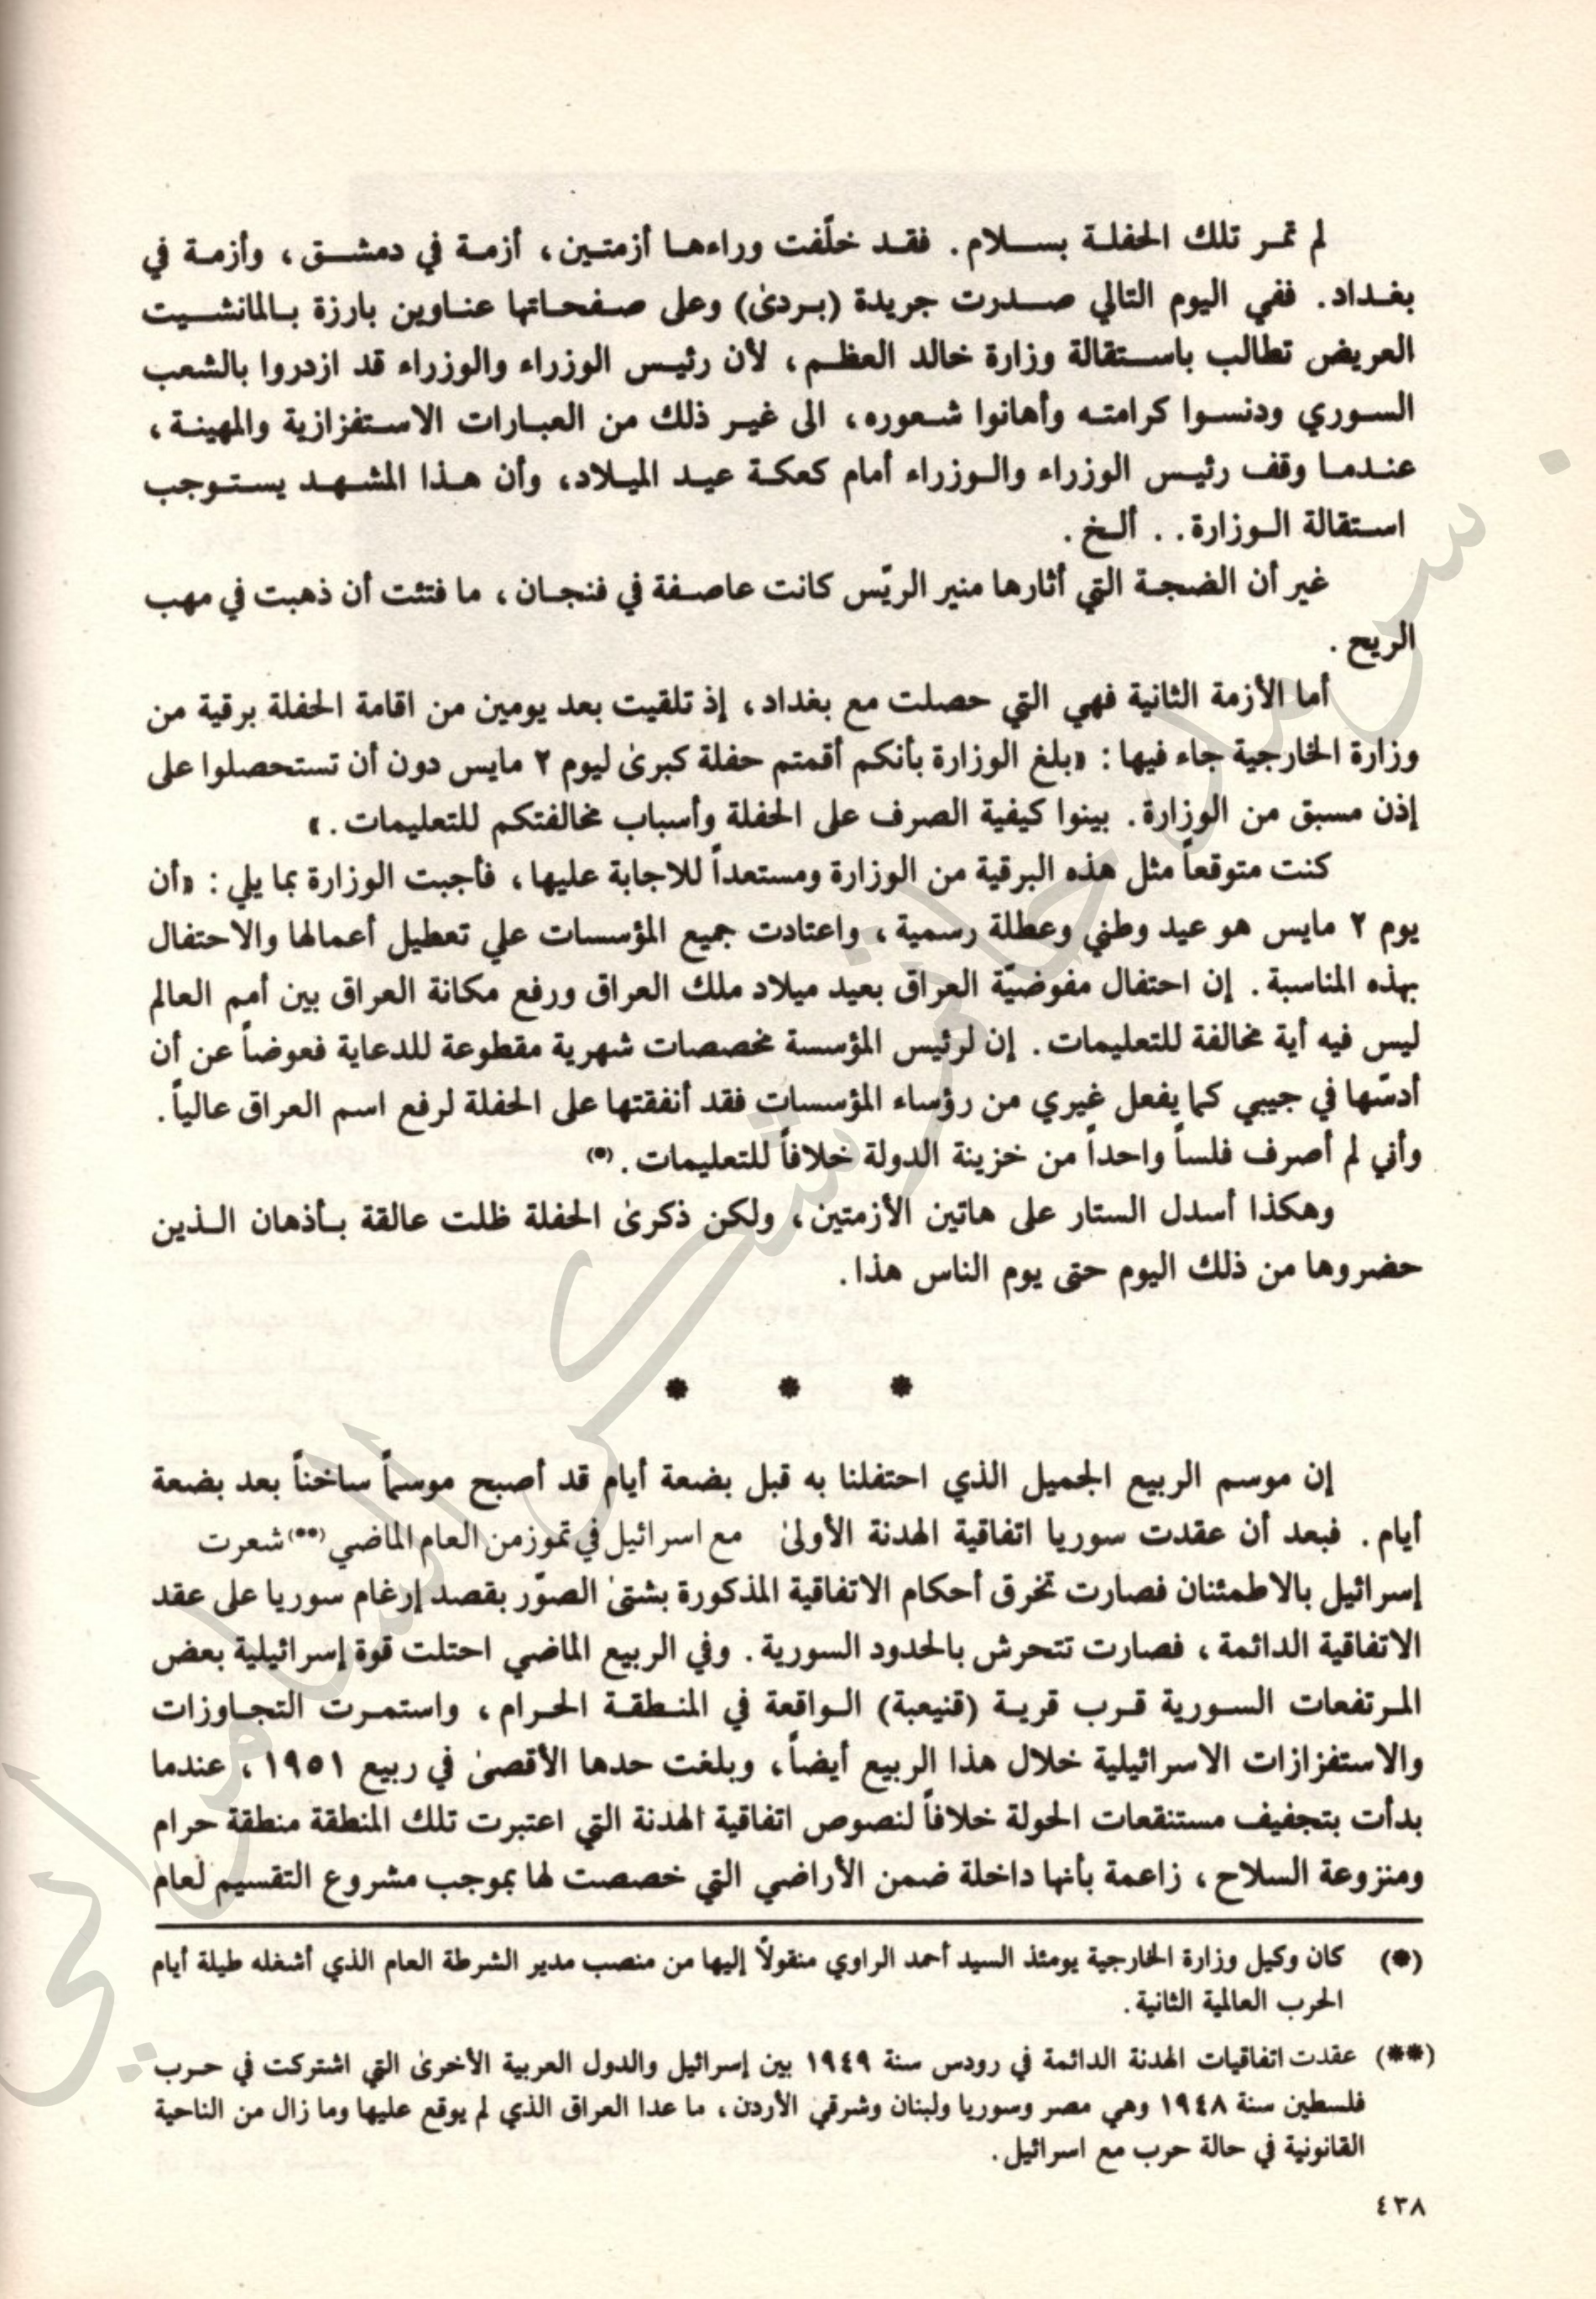 لم تمـر تلك الحفلـة بســلام. فقـد خلّفت وراءهـا أزمتـين، أزمـة في دمشـق، وأزمـة في
بغـداد. ففي اليوم التالي صـدرت جريدة (بـردىٰ) وعلى صـفحـاتها عنـاوين بارزة بـالمانشـيت
العريض تطالب باسـتقالة وزارة خالد العظـم، لأن رئيـس الوزراء والوزراء قد ازدروا بالشعب
السـوري ودنسـوا كرامتـه وأهانوا شـعوره، الى غيـر ذلك من العبـارات الاسـتفزازية والمهينـة،
عنـدمـا وقف رئيـس الوزراء والـوزراء أمام كعكـة عيـد الميـلاد، وأن هـذا المشـهـد يسـتـوجب
اسـتقالة الـوزارة. . ألـخ.
غير أن الضجـة التي أثارها منير الريّس كانت عاصـفة في فنجـان، ما فتئت أن ذهبت في مهب
الريح.
أما الأزمة الثانية فهي التي حصلت مع بغداد، إذ تلقيت بعد يومين من اقامة الحفلة برقية من
وزارة الخارجية جاء فيها: «بلغ الوزارة بأنكم أقمتم حفلة كبرىٰ ليوم ٢ مايس دون أن تستحصلوا على
إذن مسبق من الوزارة. بينوا كيفية الصرف على الحفلة وأسباب مخالفتكم للتعليمات.»
كنت متوقعاً مثل هذه البرقية من الوزارة ومستعداً للاجابة عليها، فأجبت الوزارة بما يلي: «أن
يوم ٢ مايس هو عيد وطني وعطلة رسمية، واعتادت جميع المؤسسات علي تعطيل أعمالها والاحتفال
بهذه المناسبة. إن احتفال مفوضيّة العراق بعيد ميلاد ملك العراق ورفع مكانة العراق بين أمم العالم
ليس فيه أية مخالفة للتعليمات. إن لرئيس المؤسسة مخصصات شهرية مقطوعة للدعاية فعوضاً عن أن
أدسّها في جيبي كما يفعل غيري من رؤساء المؤسسات فقد أنفقتها على الحفلة لرفع اسم العراق عالياً.
وأني لم أصرف فلساً واحداً من خزينة الدولة خلافاً للتعليمات. (*)
وهكذا أسدل الستار على هاتين الأزمتين، ولكن ذكرىٰ الحفلة ظلت عالقة بـأذهان الـذين
حضروها من ذلك اليوم حتى يوم الناس هذا.
* * *
إن موسم الربيع الجميل الذي احتفلنا به قبل بضعة أيام قد أصبح موسماً ساخناً بعد بضعة
أيام. فبعد أن عقدت سوريا اتفاقية الهدنة الأولىٰ مع اسرائيل في تموز من العام الماضي (**) شعرت
إسرائيل بالاطمئنان فصارت تخرق أحكام الاتفاقية المذكورة بشتىٰ الصوّر بقصد إرغام سوريا على عقد
الاتفاقية الدائمة، فصارت تتحرش بالحدود السورية. وفي الربيع الماضي احتلت قوة إسرائيلية بعض
المـرتفعات السـورية قـرب قريـة (قنيعبة) الـواقعة في المنـطقـة الحـرام، واستمـرت التجـاوزات
والاستفزازات الاسرائيلية خلال هذا الربيع أيضاً، وبلغت حدها الأقصىٰ في ربيع ١٩٥١، عندما
بدأت بتجفيف مستنقعات الحولة خلافاً لنصوص اتفاقية الهدنة التي اعتبرت تلك المنطقة منطقة حرام
ومنزوعة السلاح، زاعمة بأنها داخلة ضمن الأراضي التي خصصت لها بموجب مشروع التقسيم لعام
(*) كان وكيل وزارة الخارجية يومئذ السيد أحمد الراوي منقولًا إليها من منصب مدير الشرطة العام الذي أشغله طيلة أيام
الحرب العالمية الثانية.
(**) عقدت اتفاقيات الهدنة الدائمة في رودس سنة ١٩٤٩ بين إسرائيل والدول العربية الأخرىٰ التي اشتركت في حـرب
فلسطين سنة ١٩٤٨ وهي مصر وسوريا ولبنان وشرقي الأردن، ما عدا العراق الذي لم يوقع عليها وما زال من الناحية
القانونية في حالة حرب مع اسرائيل.
٤٣٨